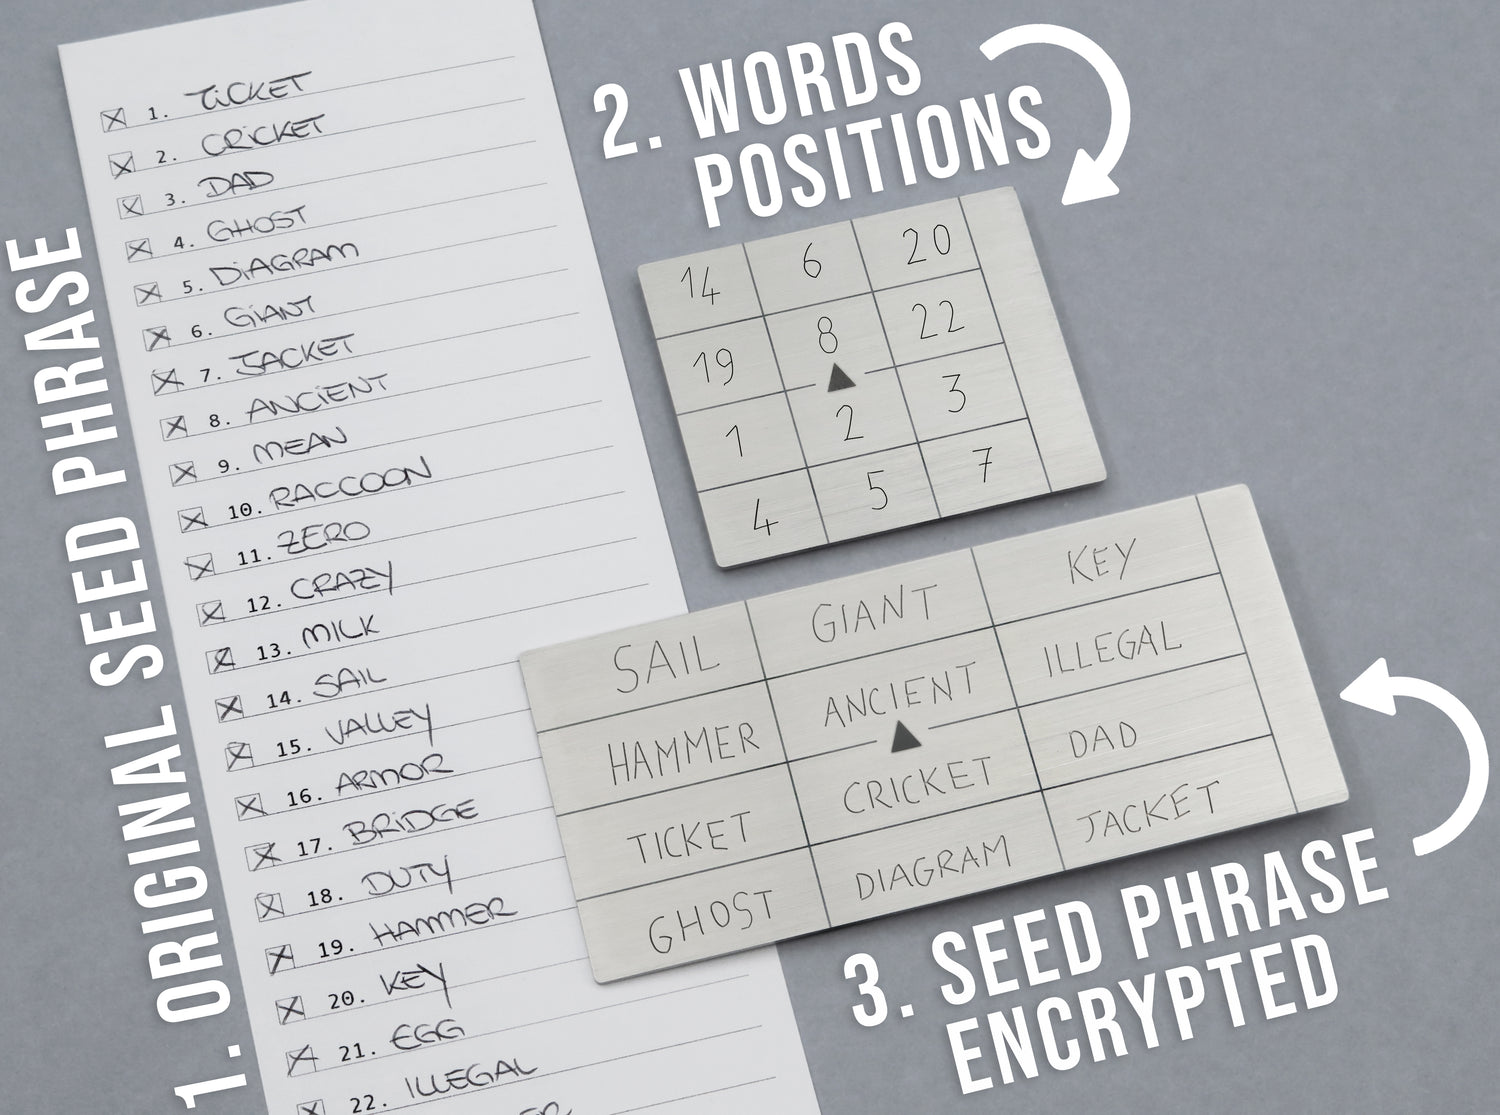 1. ORIGINAL SEED PHRASE
1. TiCKET
2. CRiCKET
3. DAD
4. GHOST
5. DiAGRAM
6. GiANT
7. JACKET
8. ANCiENT
9. MEAN
10. RACCOON
11. ZERO
12. CRAZY
13. MILK
14. SAIL
15. VALLEY
16. ARMOR
17. BRiDGE
18. DUTY
19. HAMMER
20. KEY
21. EGG
22. ILLEGAL
2. WORDS
POSITIONS
14 6 20
19 8 22
1 2 3
4 5 7
SAIL GIANT KEY
HAMMER ANCIENT ILLEGAL
TICKET CRICKET DAD
GHOST DIAGRAM JACKET
3. SEED PHRASE
ENCRYPTED